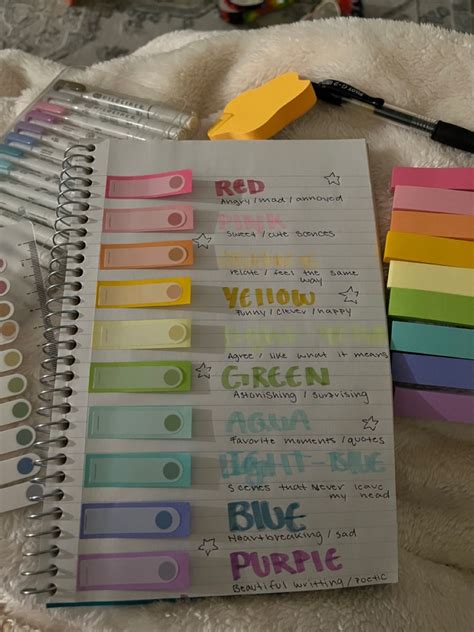 RED
Angry / mad / annoyed
PINK
Sweet / cute scences
ORANGE
relate / feels the same
way
YELLOW
Funny / clever / happy
Agree / like what it means
GREEN
Astonishing / surprising
AQUA
Favorite moments / quotes
LIGHT-BLUE
Scenes that Never leave
my head
BLUE
Heartbreaking / sad
PURPLE
Beautiful writting / Poetic